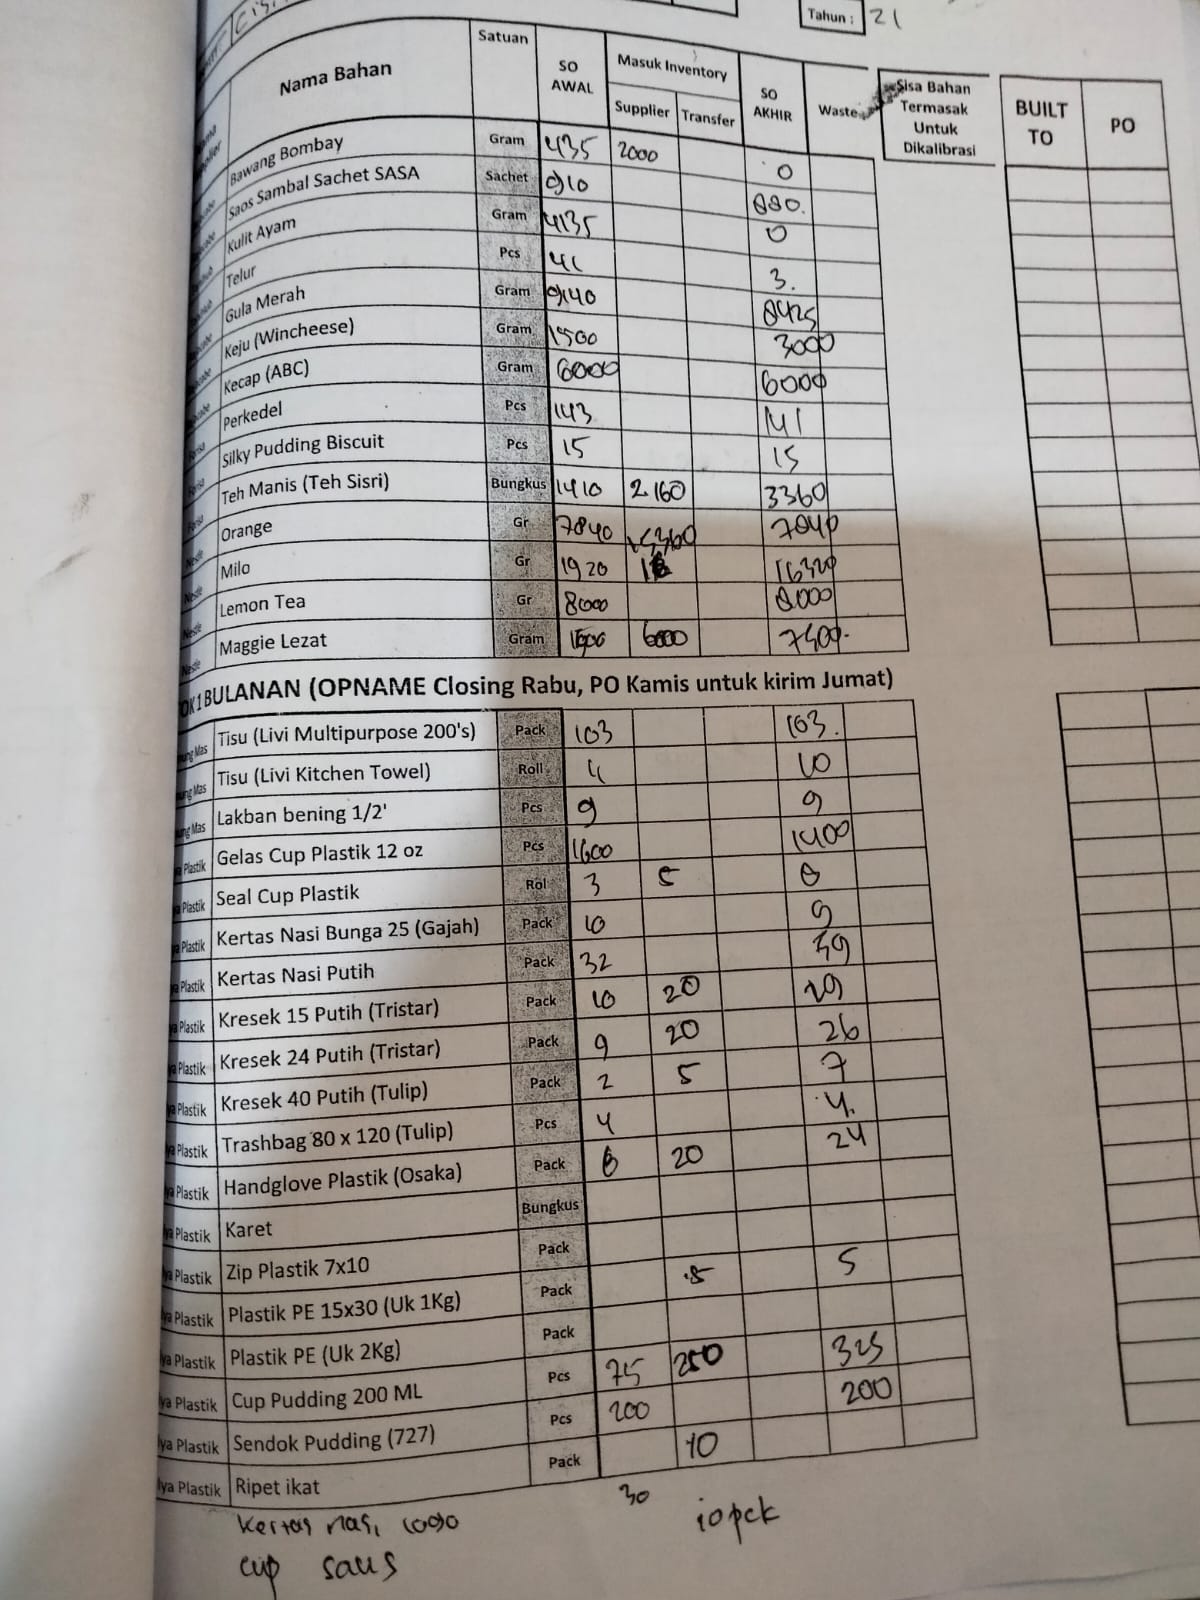 Tahun : 21
Nama Bahan Satuan SO AWAL Masuk Inventory Supplier Transfer SO AKHIR Waste Sisa Bahan Termasak Untuk Dikalibrasi BUILT TO PO
Bawang Bombay Gram 435 2000 0
Saos Sambal Sachet SASA Sachet 910 880.
Kulit Ayam Gram 4135 0
Telur Pcs 3.
Gula Merah Gram 9140 8425
Keju (Wincheese) Gram 1500 3000
Kecap (ABC) Gram 6000 6000
Perkedel Pcs 143 141
Silky Pudding Biscuit Pcs 15 15
Teh Manis (Teh Sisri) Bungkus 1410 2160 3360
Orange Gr 7840 15360 7840
Milo Gr 1920 16320
Lemon Tea Gr 8000 8000
Maggie Lezat Gram 1500 6000 7500.
BULANAN (OPNAME Closing Rabu, PO Kamis untuk kirim Jumat)
Tisu (Livi Multipurpose 200's) Pack 103 103.
Tisu (Livi Kitchen Towel) Roll 10
Lakban bening 1/2' Pcs 9 9
Plastik Gelas Cup Plastik 12 oz Pcs 1600 1400
Plastik Seal Cup Plastik Rol 3 5 8
Plastik Kertas Nasi Bunga 25 (Gajah) Pack 10 9
Plastik Kertas Nasi Putih Pack 32 39
Plastik Kresek 15 Putih (Tristar) Pack 10 20 29
Plastik Kresek 24 Putih (Tristar) Pack 9 20 26
Plastik Kresek 40 Putih (Tulip) Pack 2 5 7
Plastik Trashbag 80 x 120 (Tulip) Pcs 4 4.
Plastik Handglove Plastik (Osaka) Pack 6 20 24
Plastik Karet Bungkus
Plastik Zip Plastik 7x10 Pack
Plastik Plastik PE 15x30 (Uk 1Kg) Pack 5 5
Plastik Plastik PE (Uk 2Kg) Pack
Plastik Cup Pudding 200 ML Pcs 75 250 325
Plastik Sendok Pudding (727) Pcs 200 200
Plastik Ripet ikat Pack 10
Kertas nasi logo 30 10pck
cup saus